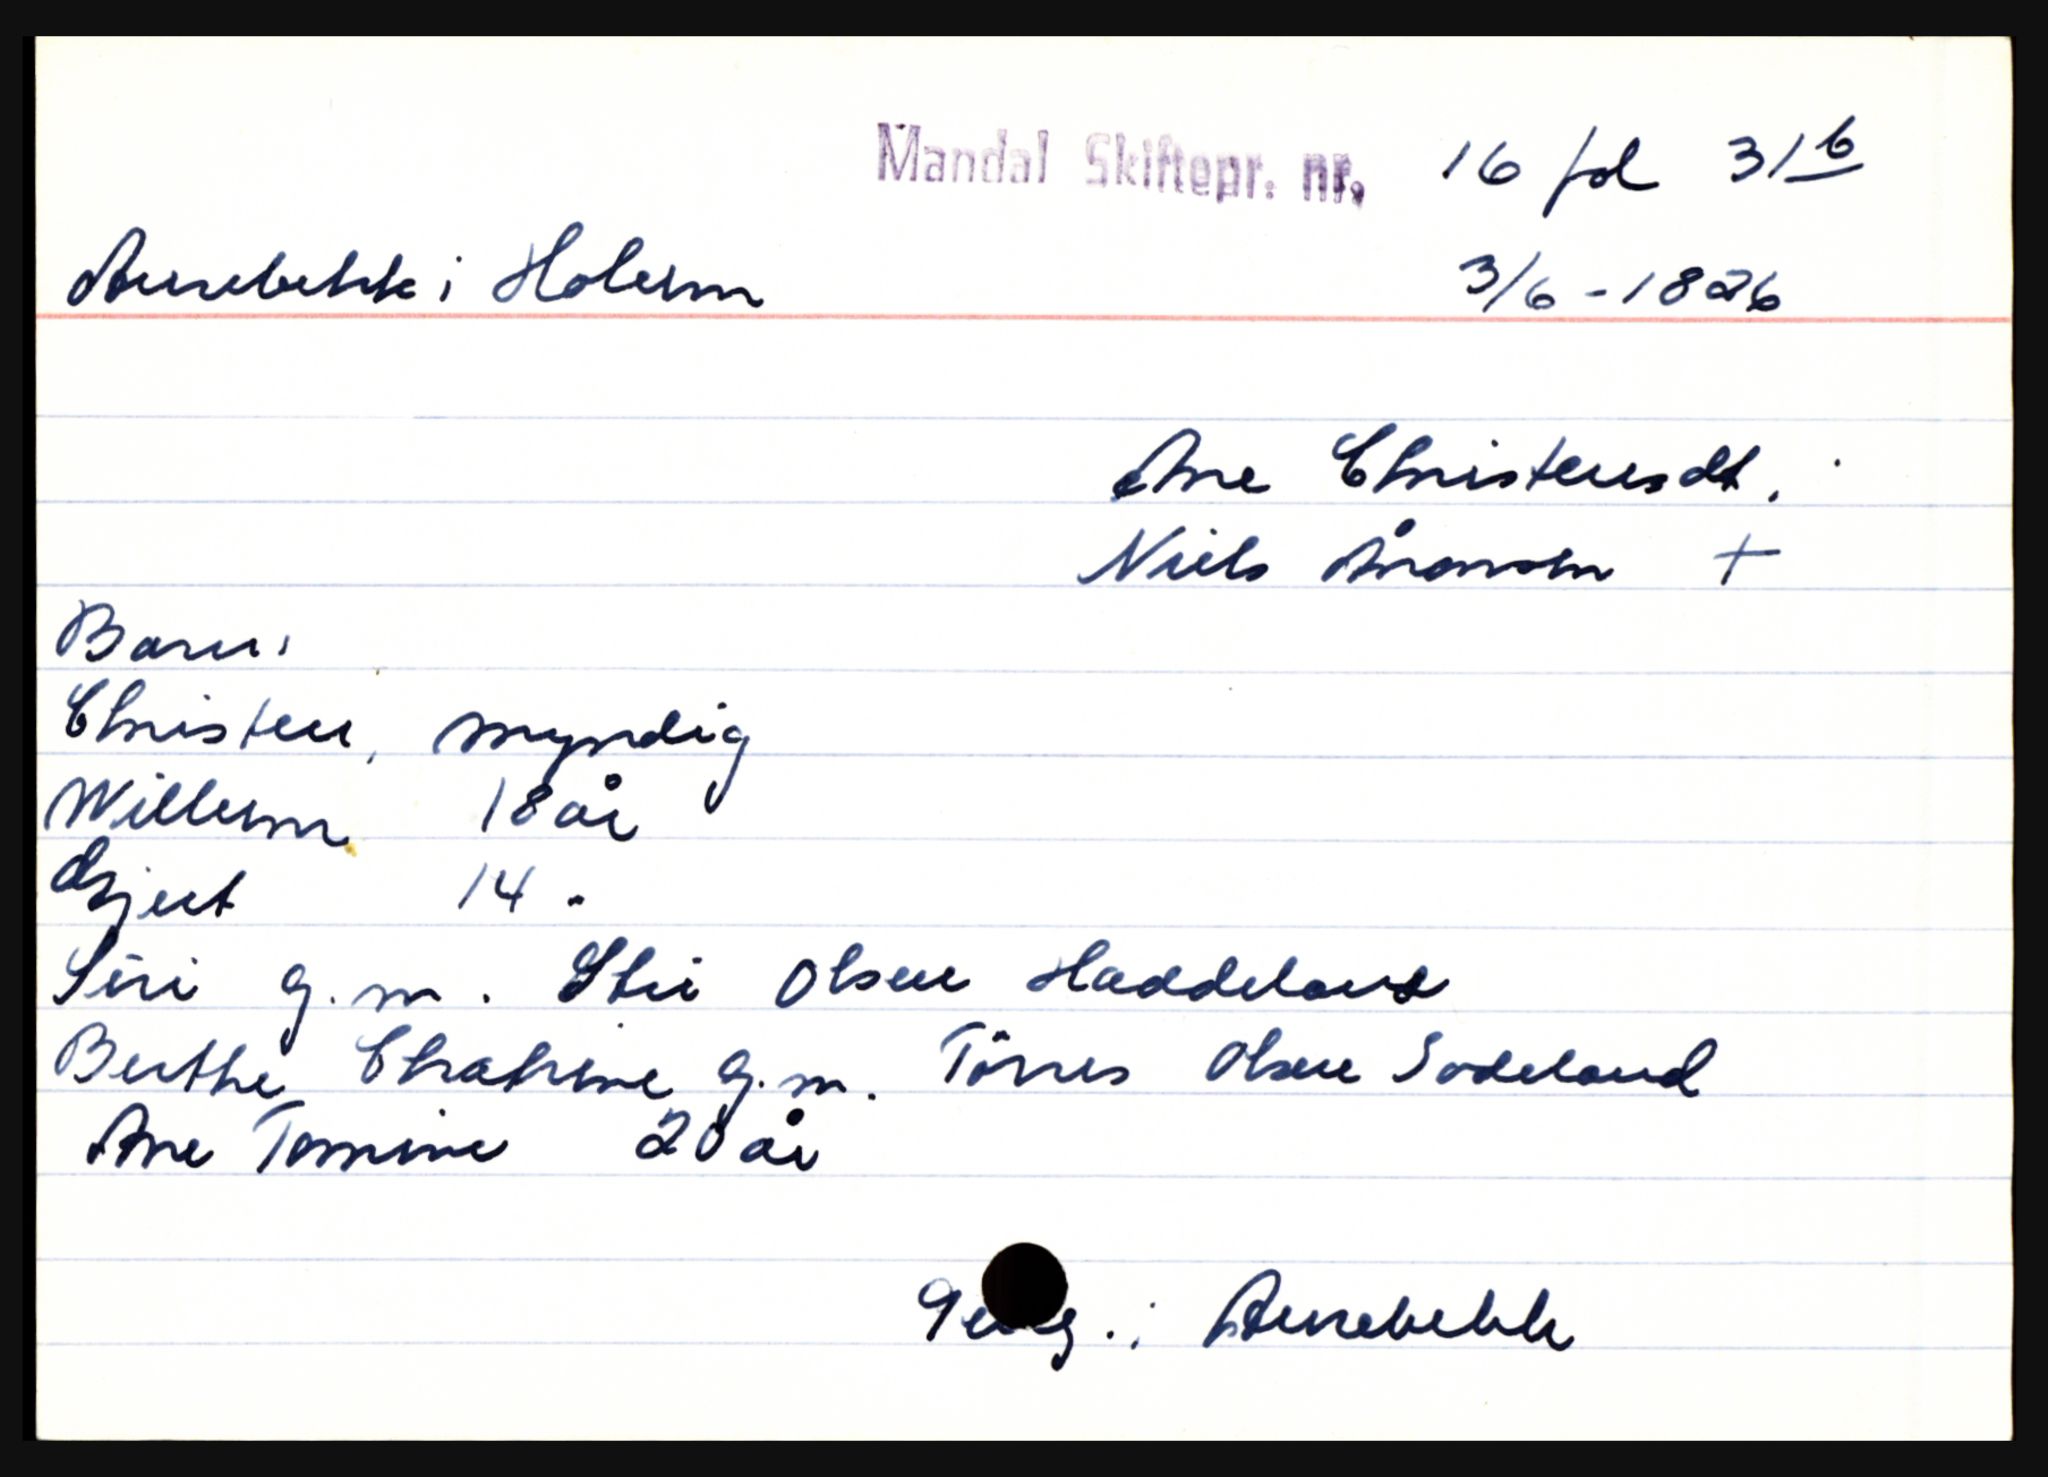 Mandal Skiftepr. nr. 16 fol 31b
Aurebekk i Holum 3/6 - 1826
Ane Christensdt.
Niels Aronsen +
Barn:
Christen, myndig
Willum 18 år
Gjert 14 "
Siri g.m. Stii Olsen Haddeland
Berthe Chatrine g.m. Törres Olsen Sodeland
Ane Tomine 20 år
i Aurebekk